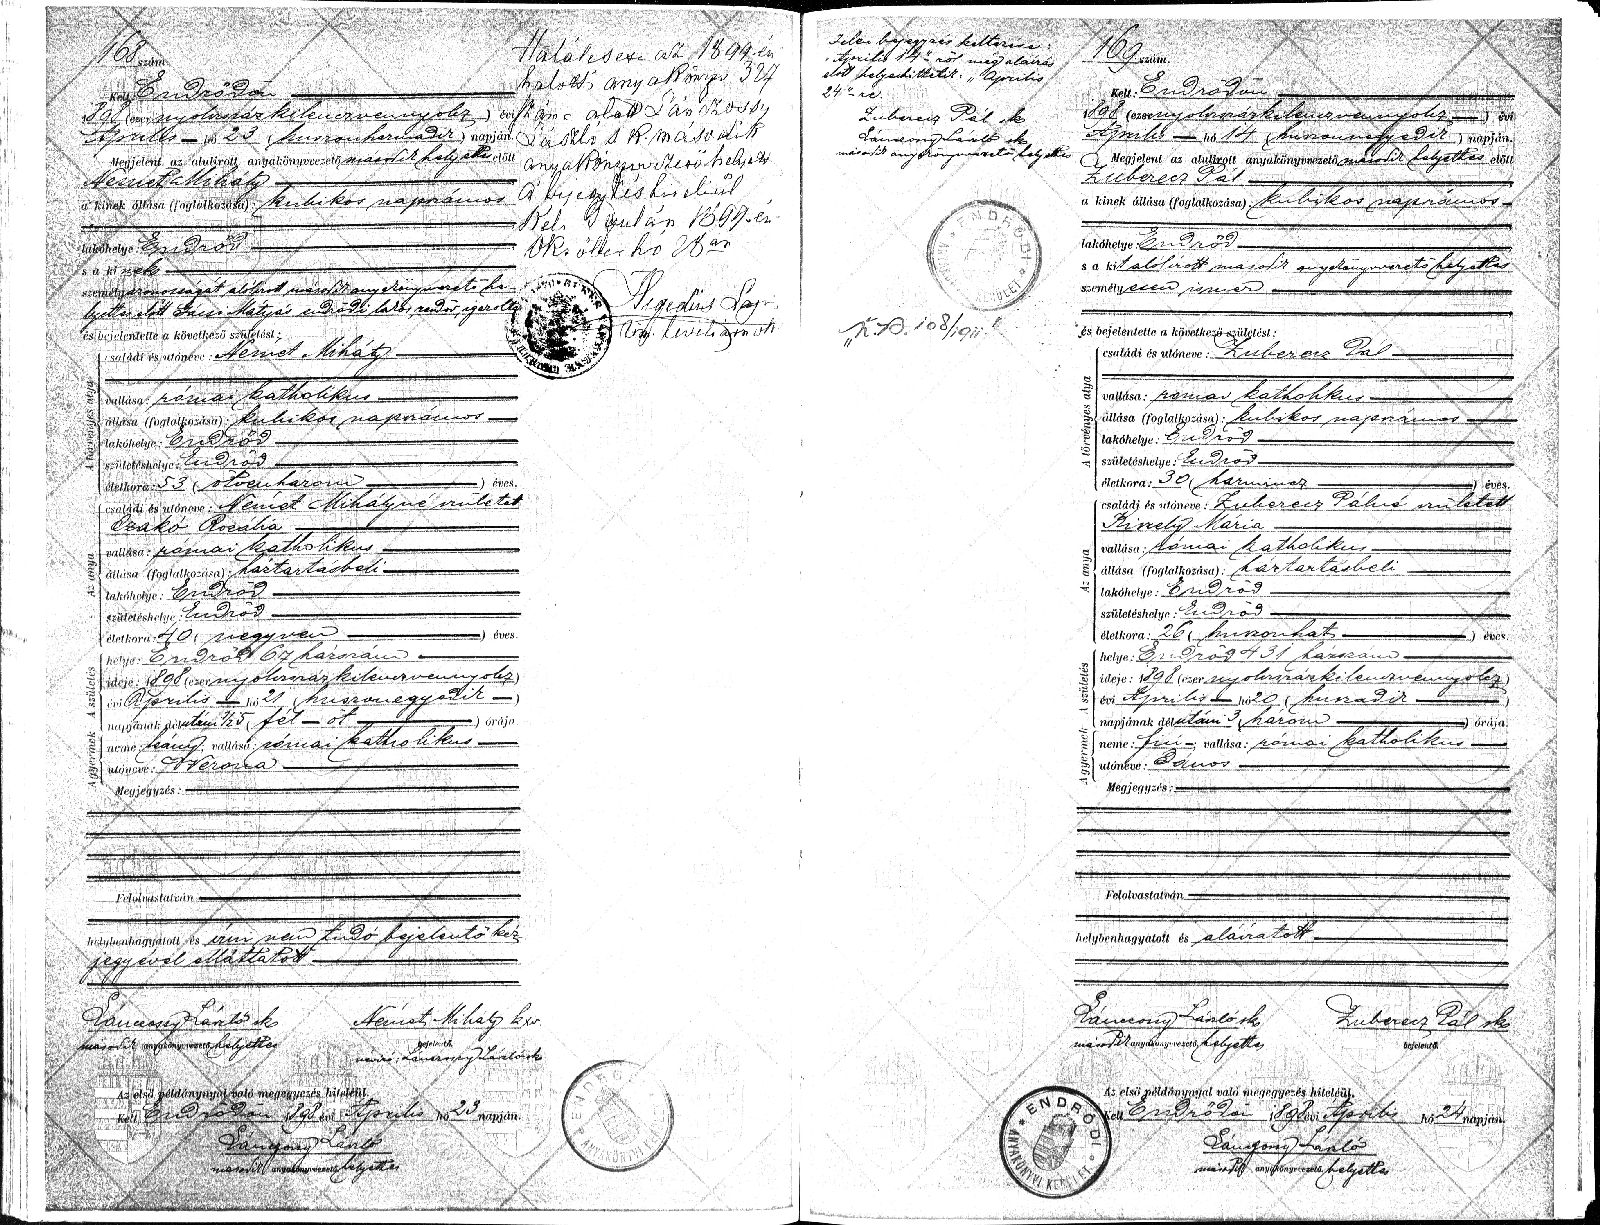 168 szám.
Kelt Endrődön
1898 (ezer nyolczszázkilenczvennyolcz) évi
Április hó 23 (huszonharmadik) napján.
Megjelent az alulirott anyakönyvvezető második helyettes előtt
Német Mihály
a kinek állása (foglalkozása): kubikos napszámos
lakóhelye: Endrőd
s a kinek
személyazonosságát alólirott második anyakönyvvezető he-
lyettes előtt Mátyás endrődi lakos rendőr igazolta
és bejelentette a következő születést:
A törvényes atya
családi és utóneve: Német Mihály
vallása: római katholikus
állása (foglalkozása): kubikos napszámos
lakóhelye: Endrőd
születéshelye: Endrőd
életkora: 53 (ötvenhárom) éves.
Az anya
családi és utóneve: Német Mihályné született
Czakó Rozália
vallása: római katholikus
állása (foglalkozása): háztartásbeli
lakóhelye: Endrőd
születéshelye: Endrőd
életkora: 40 (negyven) éves.
A születés
helye: Endrőd 67 házszám
ideje: 1898 (ezer nyolczszázkilenczvennyolcz)
évi Április hó 21 (huszonegyedik)
napjának délutáni 1/2 5 (fél öt) órája
A gyermek
neme: leány; vallása: római katholikus
utóneve: Verona
Megjegyzés:
Felolvastatván
helybenhagyatott és írni nem tudó bejelentő kéz-
jegyével elláttatott
Lánczony László sk
második anyakönyvvezető helyettes
Német Mihály
bejelentő.
névíró, Lánczony László sk
Az első példánynyal való megegyezés hiteléül.
Kelt Endrődön 1898 évi Április hó 23 napján.
Lánczony László
második anyakönyvvezető helyettes
ENDRŐDI
ANYAKÖNYVI KERÜLET
1899 én
halotti anyakönyv 327
szám alatt Lánczony
László s. k. második
anyakönyvvezető helyettes
A bejegyzés hiteléül
Kelt Gyulán 1899 én
Október hó 28 án
Hegedüs
vm. levéltárnok
Jelen bejegyzés keltezése:
„Április 14" ről még aláírás
előtt helyesbíttetett „Április
24" re.
Zuberecz Pál sk
Lánczony László sk
második anyakönyvvezető helyettes
ENDRŐDI
ANYAKÖNYVI KERÜLET
108/1911
169 szám.
Kelt: Endrődön
1898 (ezer nyolczszázkilenczvennyolcz) évi
Április hó 14 (huszonnegyedik) napján.
Megjelent az alulirott anyakönyvvezető második helyettes előtt
Zuberecz Pál
a kinek állása (foglalkozása): kubikos napszámos
lakóhelye: Endrőd
s a kit alólirott második anyakönyvvezető helyettes
személyesen ismer
és bejelentette a következő születést:
A törvényes atya
családi és utóneve: Zuberecz Pál
vallása: római katholikus
állása (foglalkozása): kubikos napszámos
lakóhelye: Endrőd
születéshelye: Endrőd
életkora: 30 (harmincz) éves.
Az anya
családi és utóneve: Zuberecz Pálné született
Mária
vallása: római katholikus
állása (foglalkozása): háztartásbeli
lakóhelye: Endrőd
születéshelye: Endrőd
életkora: 26 (huszonhat) éves.
A születés
helye: Endrőd 431 házszám
ideje: 1898 (ezer nyolczszázkilenczvennyolcz)
évi Április hó 20 (huszadik)
napjának délutáni 3 (három) órája.
A gyermek
neme: fiú; vallása: római katholikus
utóneve: János
Megjegyzés:
Felolvastatván
helybenhagyatott és aláíratott
Lánczony László sk
második anyakönyvvezető helyettes
Zuberecz Pál sk
bejelentő.
Az első példánynyal való megegyezés hiteléül.
Kelt Endrődön 1898 évi Április hó 24 napján.
Lánczony László
második anyakönyvvezető helyettes
ENDRŐDI
ANYAKÖNYVI KERÜLET